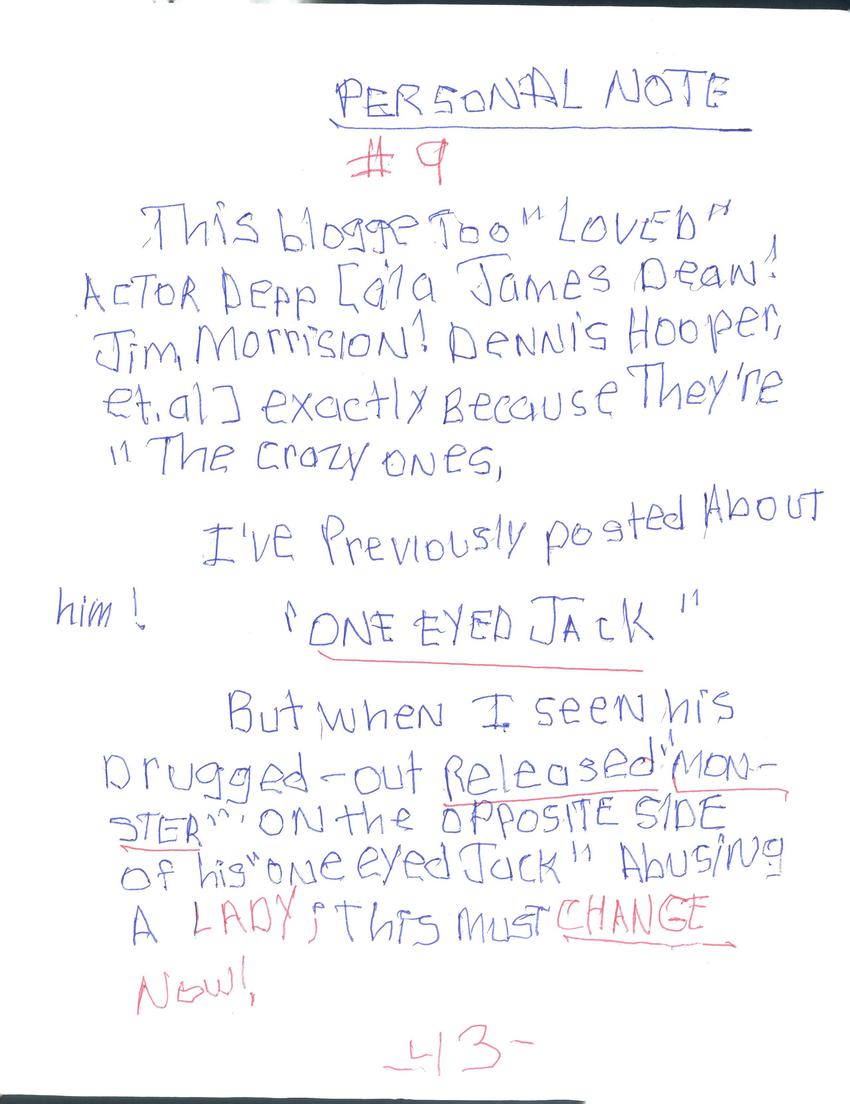 PERSONAL NOTE
# 9
This blogge Too "LOVED"
ACTOR Depp [a'la James Dean!
Jim Morrision! Dennis Hooper,
et.al] exactly Because They're
"The Crazy ones,
I've Previously posted About
him! "ONE EYED JACK"
But when I seen his
Drugged-out Released "MON-
STER" ON the OPPOSITE SIDE
of his "one eyed Jack" Abusing
A LADY; this must CHANGE
Now!
-43-